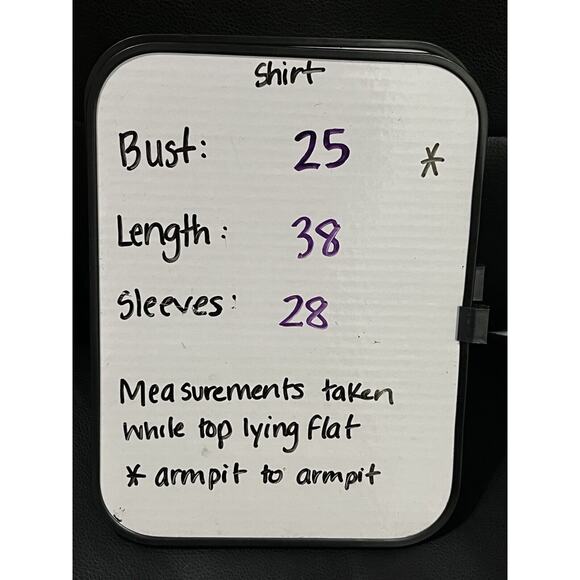 Shirt
Bust: 25 *
Length: 38
Sleeves: 28
Measurements taken
while top lying flat
* armpit to armpit